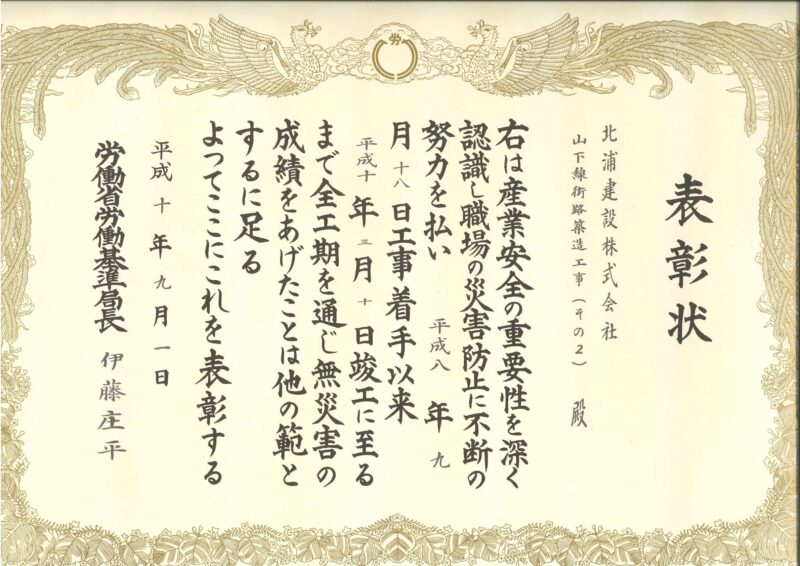 労
表彰状
北浦建設株式会社
山下線街路築造工事(その2) 殿
右は産業安全の重要性を深く
認識し職場の災害防止に不断の
努力を払い 平成八年九
月十八日工事着手以来
平成十年三月十日竣工に至る
まで全工期を通じ無災害の
成績をあげたことは他の範と
するに足る
よってここにこれを表彰する
平成十年九月一日
労働省労働基準局長 伊藤庄平